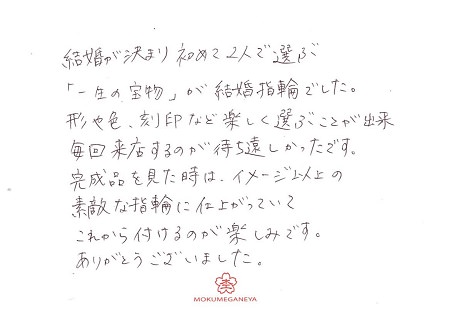 結婚が決まり初めて2人で選ぶ
「一生の宝物」が結婚指輪でした。
形や色、刻印など楽しく選ぶことが出来
毎回来店するのが待ち遠しかったです。
完成品を見た時は、イメージ以上の
素敵な指輪に仕上がっていて
これから付けるのが楽しみです。
ありがとうございました。
MOKUMEGANEYA